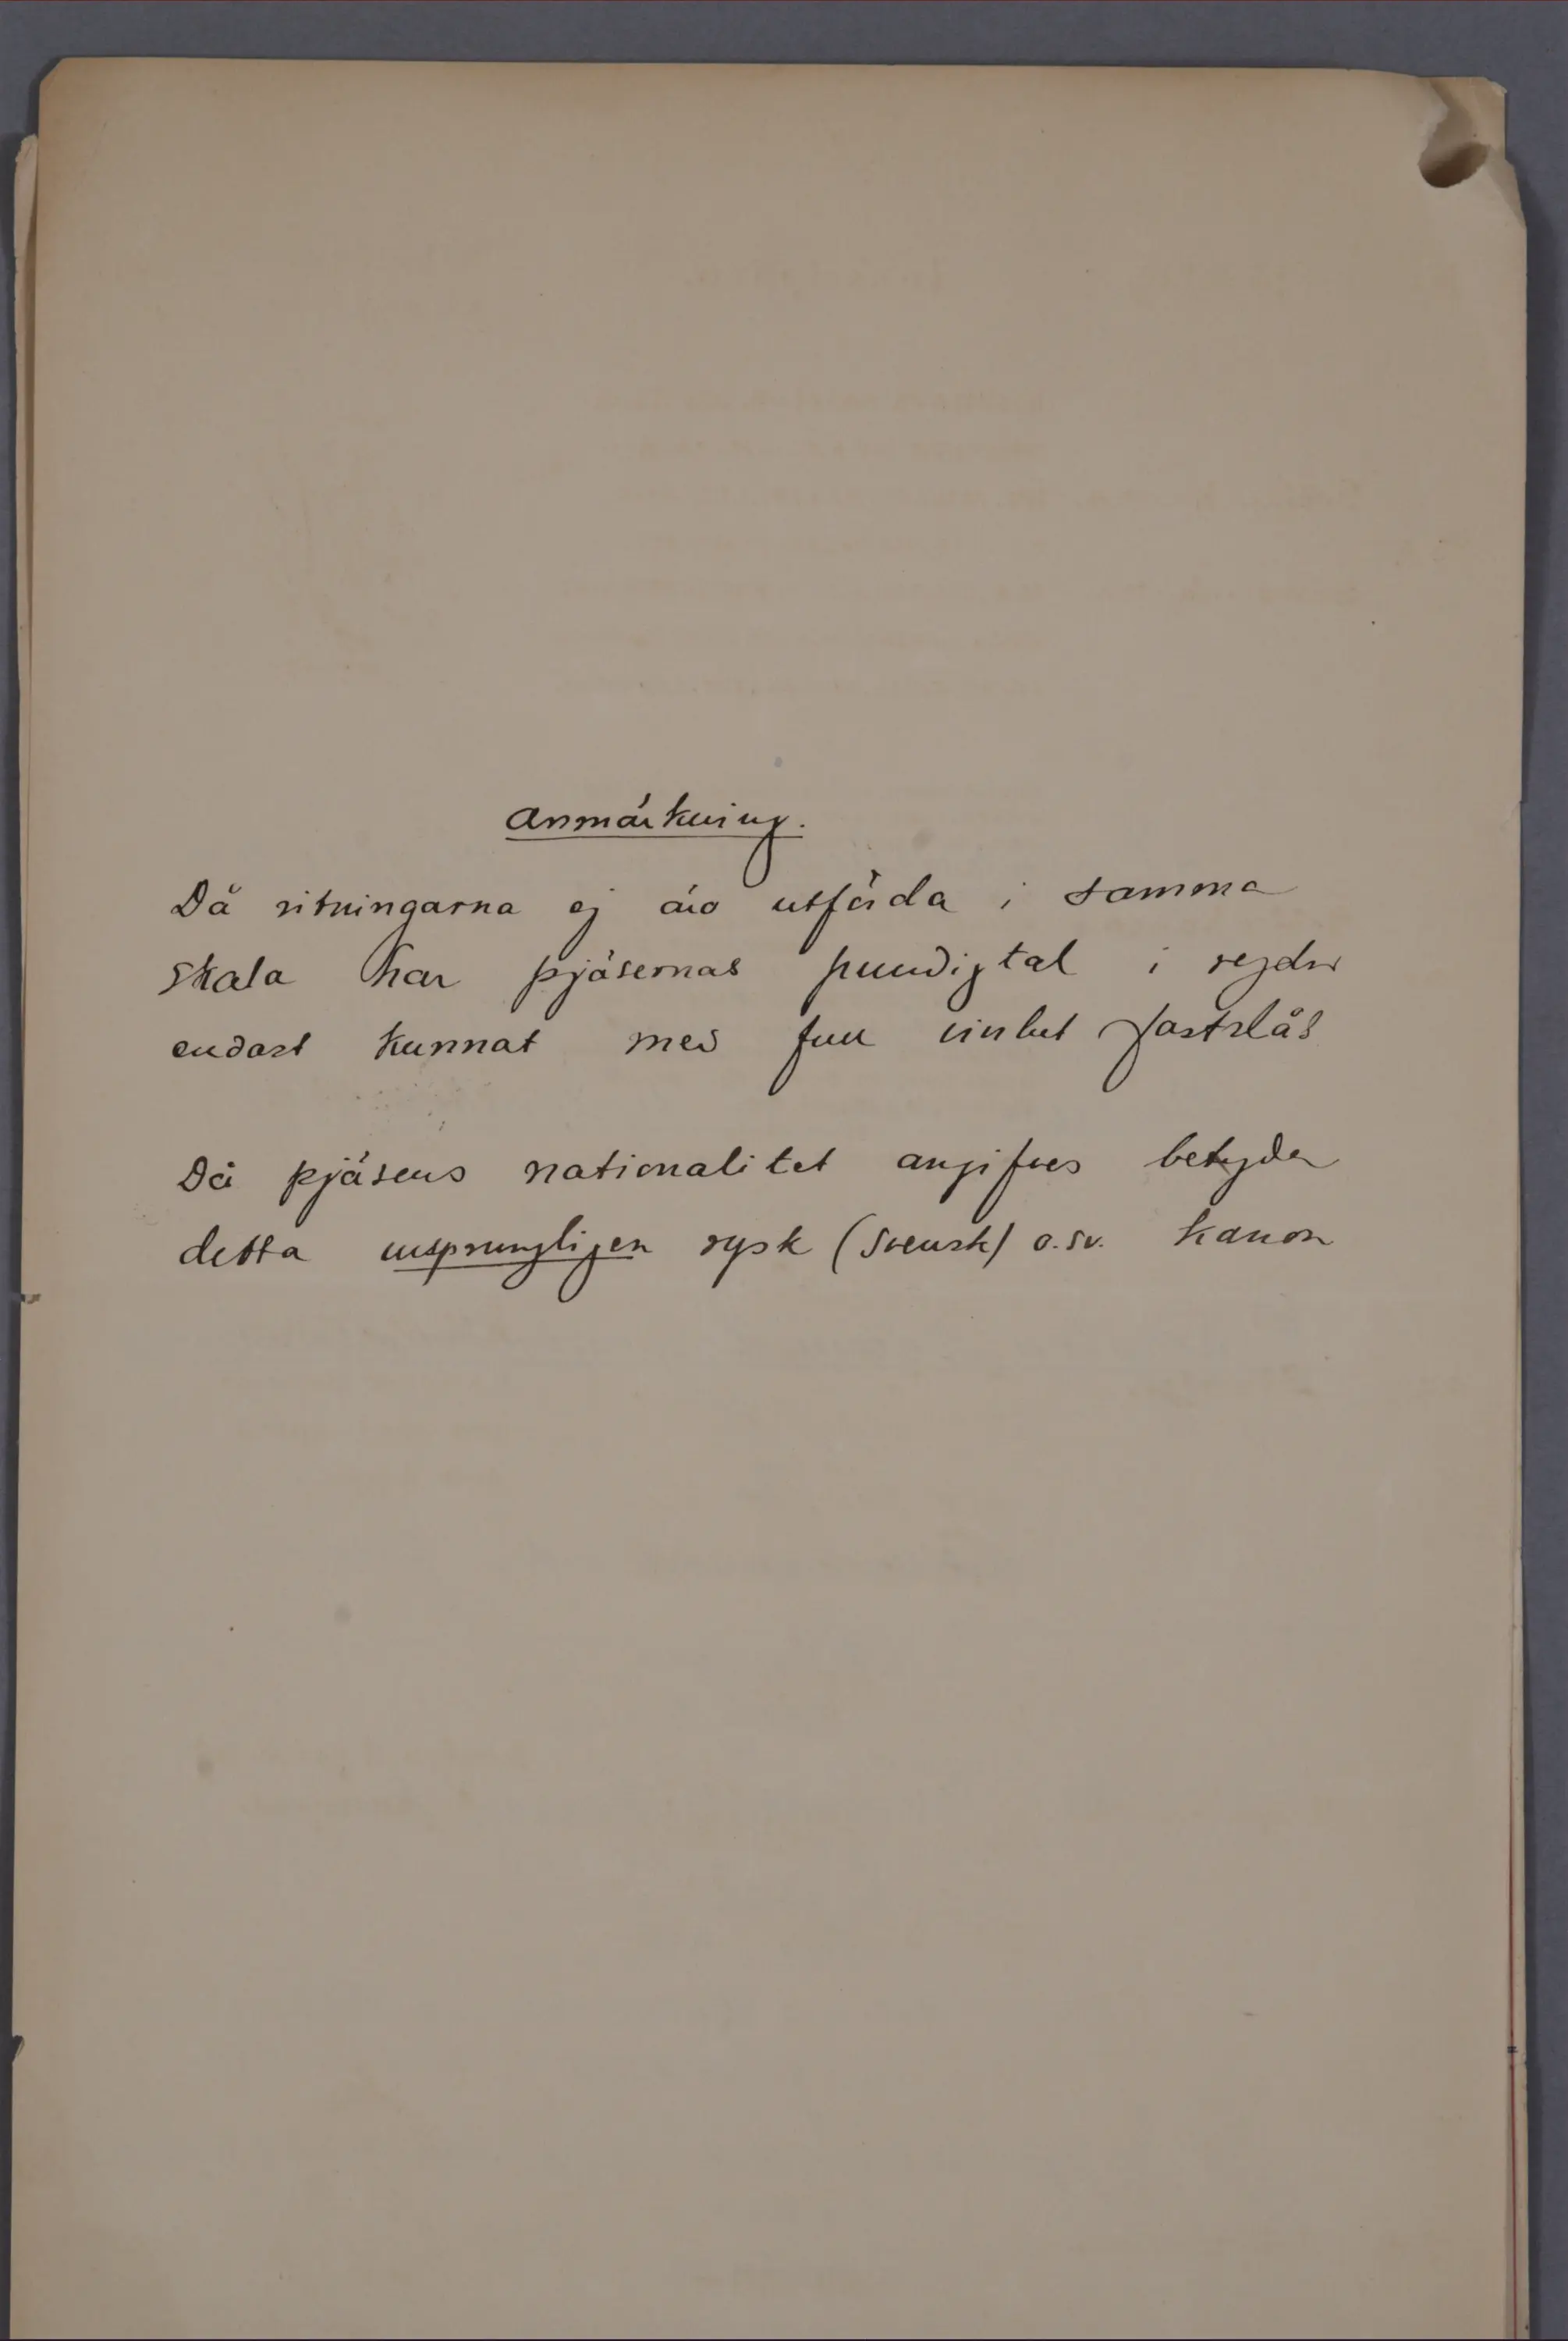 Anmärkning.
Då ritningarna ej äro utförda i samma
skala har pjäsernas pundigtal i regeln
endast kunnat med fullt fastslås
Då pjäsens nationalitet angifves betyder
detta ursprungligen rysk (svensk) o.sv. kanon